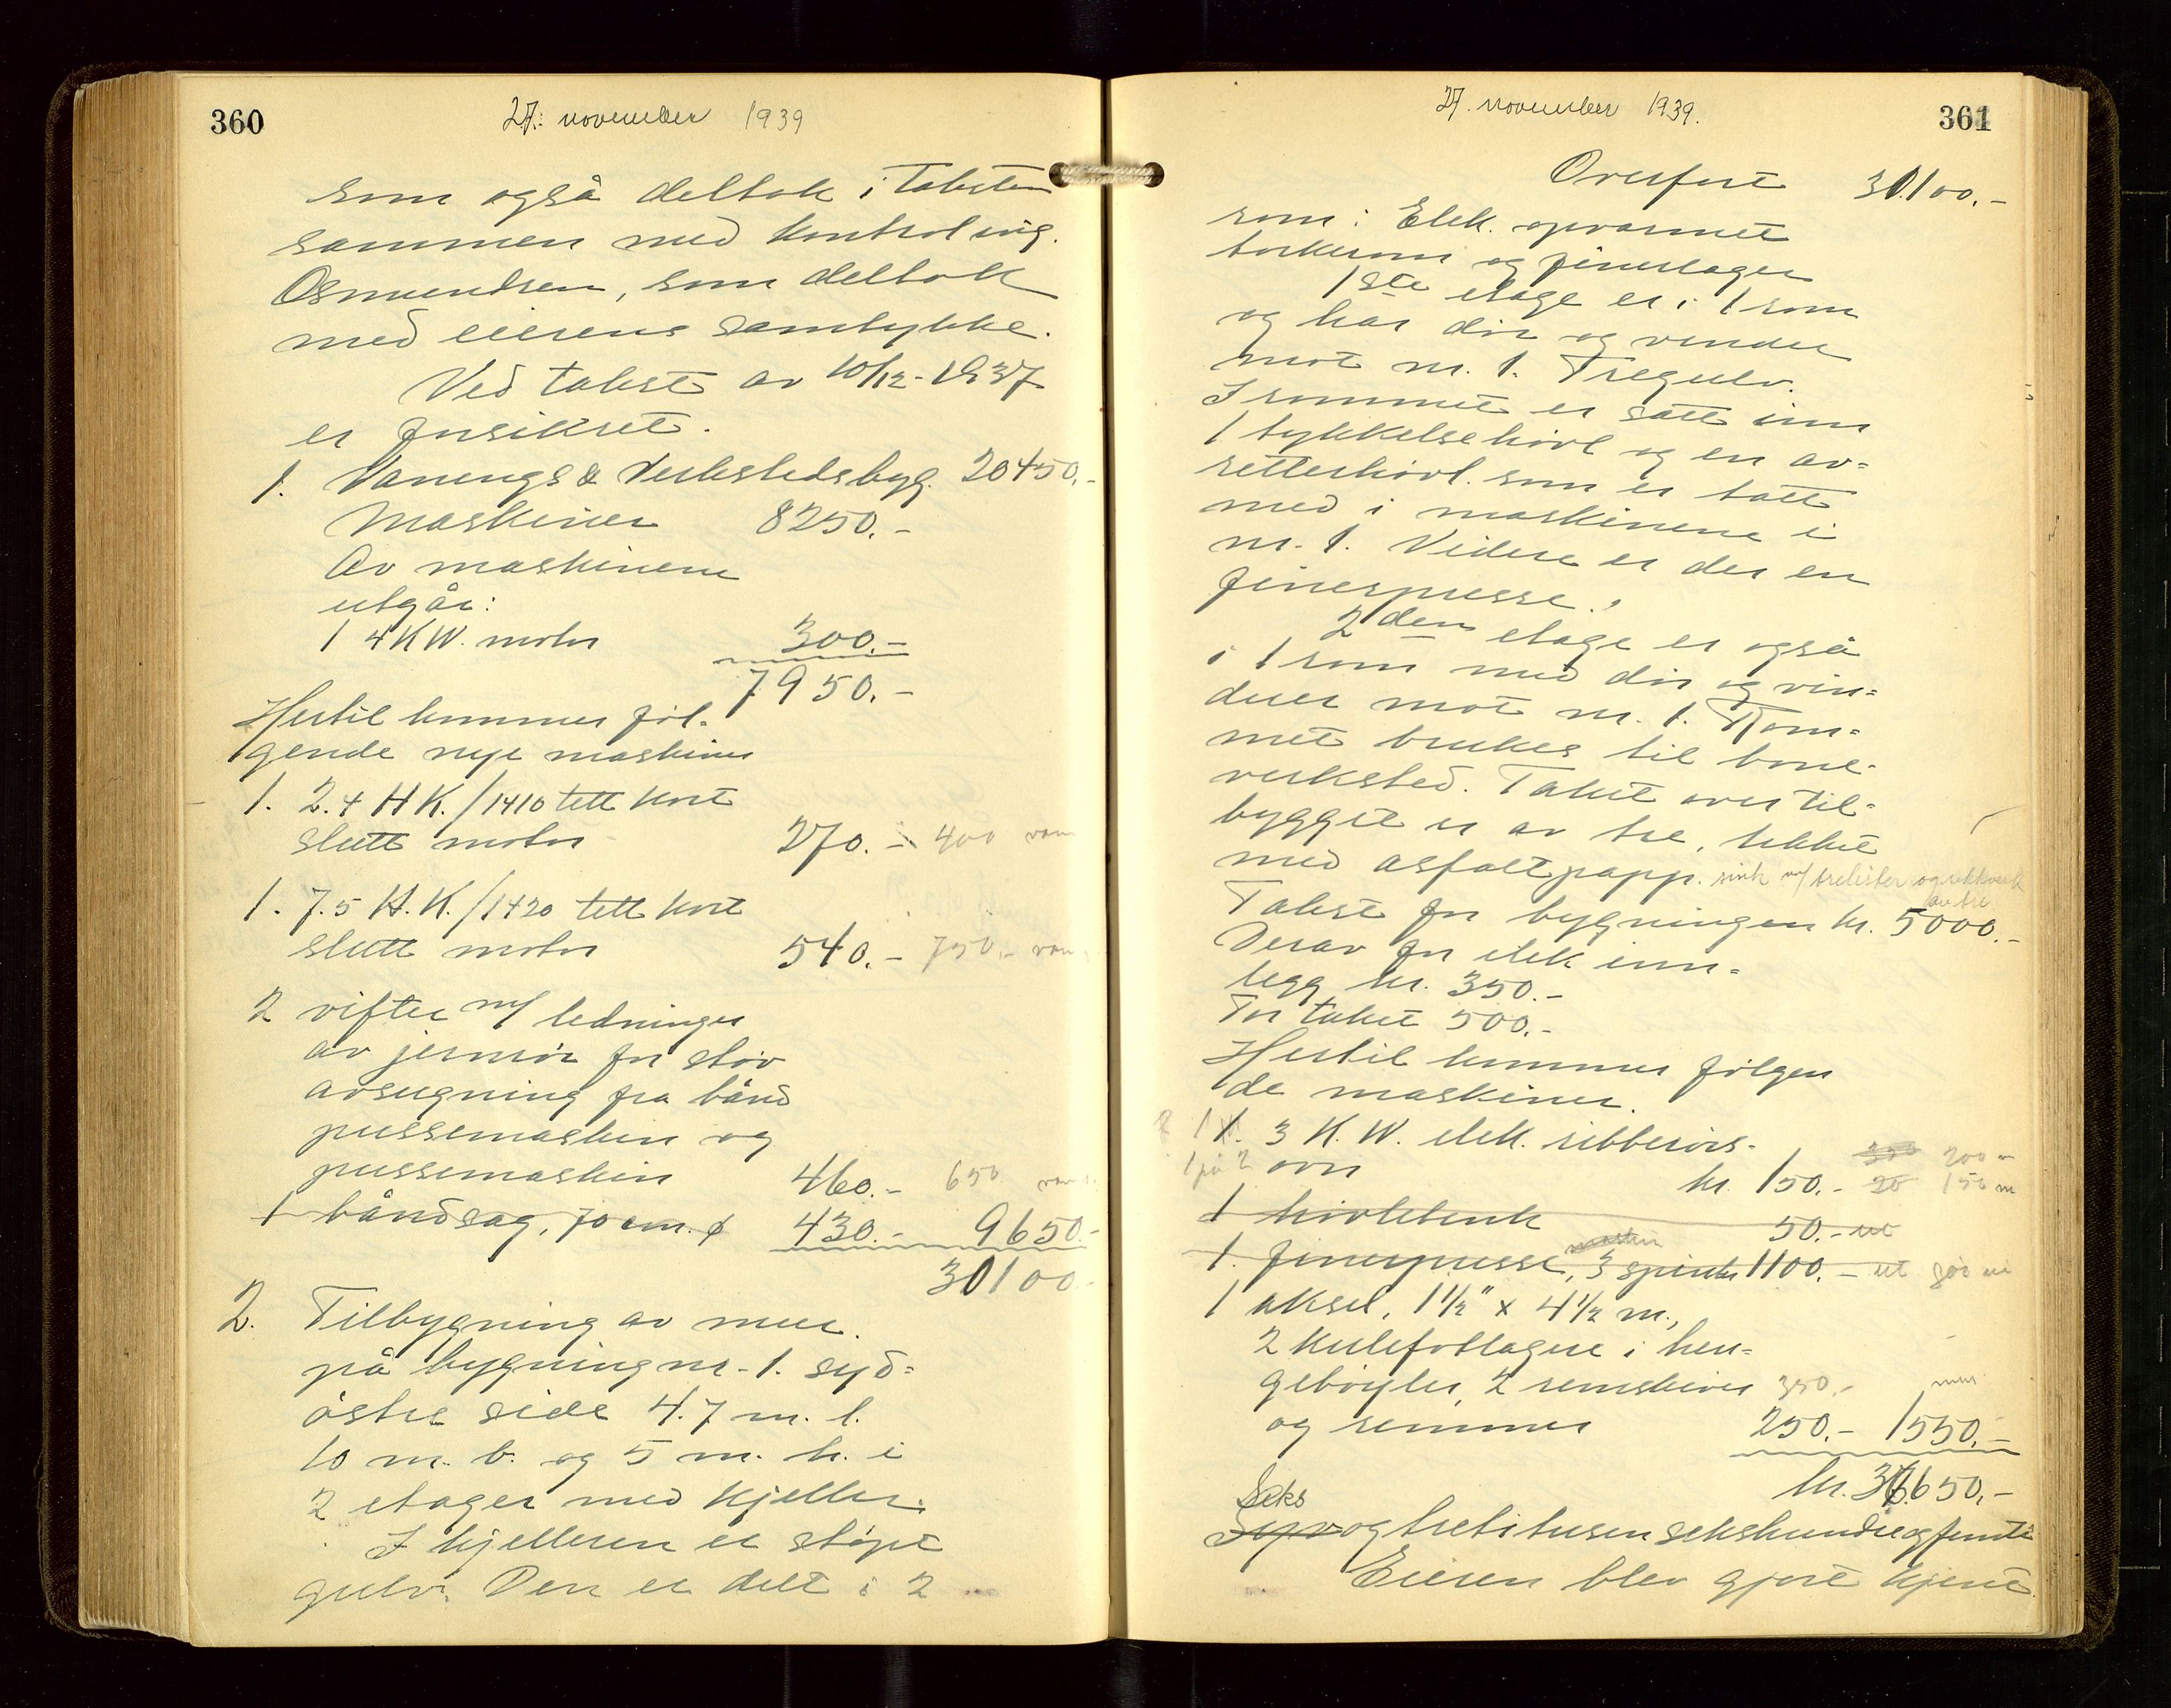 360
27. november 1939
som også deltok i taksten
sammen med kontrol ing.
Osmundsen, som deltok
med eierens samtykke.
Ved takst av 10/12-1937
er forsikret.
1. Vanings & Verkstedsbyg. 20450.-
Maskiner 8250.-
Av maskinene
utgår:
1 4 KW. motor 300.-
7950.-
Hertil kommer føl-
gende nye maskiner
1. 2.4 H K./1410 tett kort
slutt motor 270.- 400
1. 7.5 H.K./1420 tett kort
slutt motor 540.- 750.-
2 vifter m/ ledninger
av jernrør for støv
avsugning fra bånd
pussemaskin og
pussemaskin 460.- 650
1 båndsag, 70 cm. ø 430.- 9650.-
30100
2. Tilbygning av mur.
på bygning nr. 1. syd=
østre side 4.7 m. l.
10 m. b. og 5 m. h. i
2 etager med kjeller.
I kjelleren er støpt
gulv. Den er delt i 2
361
27. november 1939.
Overført 30100.-
rom: Elek. opvarmet
tørkerom og finerlager
1ste etage er i 1 rom
og har dør og vindu
mot nr. 1. Tregulv.
I rommet er satt inn
1 tykkelsehøvl og en av=
retterhøvl. som er tatt
med i maskinene i
nr. 1. Videre er der en
finerpresse.
2den etage er også
i 1 rom med dør og vin=
duer mot nr. 1. Rom=
met brukes til bone-
verksted. Taket over til=
bygget er av tre, tekket
med asfaltpapp. sink m/ trelister og rekkverk
av tre
Takst for bygningen kr. 5000.-
Derav for elek inn=
legg kr. 350.-
For taket 500.-
Hertil kommer følgen
de maskiner.
1 1. 3 K.W. elek. ribberørs-
1 på 2 ovn kr. 150.- 200
150
1 høvlebenk 50.- ut
1. finerpresse, 3 spindler 1100.- ut
1 aksel, 1 1/2" x 4 1/2 m.,
2 kulefotlagere i hen=
gebøyler, 2 remskiver 350.-
og remmer 250.- 1550.-
kr. 36650.-
Seks
Syv og tretitusen sekshundre og femti
Eieren blev gjort kjent